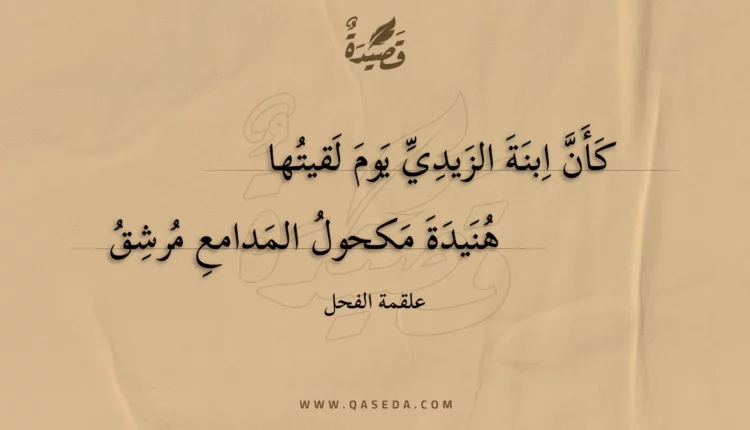 قَصِيدَةٌ
كَأَنَّ اِبنَةَ الزَيدِيِّ يَومَ لَقيتُها
هُنَيدَةَ مَكحولُ المَدامعِ مُرشِقُ
علقمة الفحل
WWW.QASEDA.COM